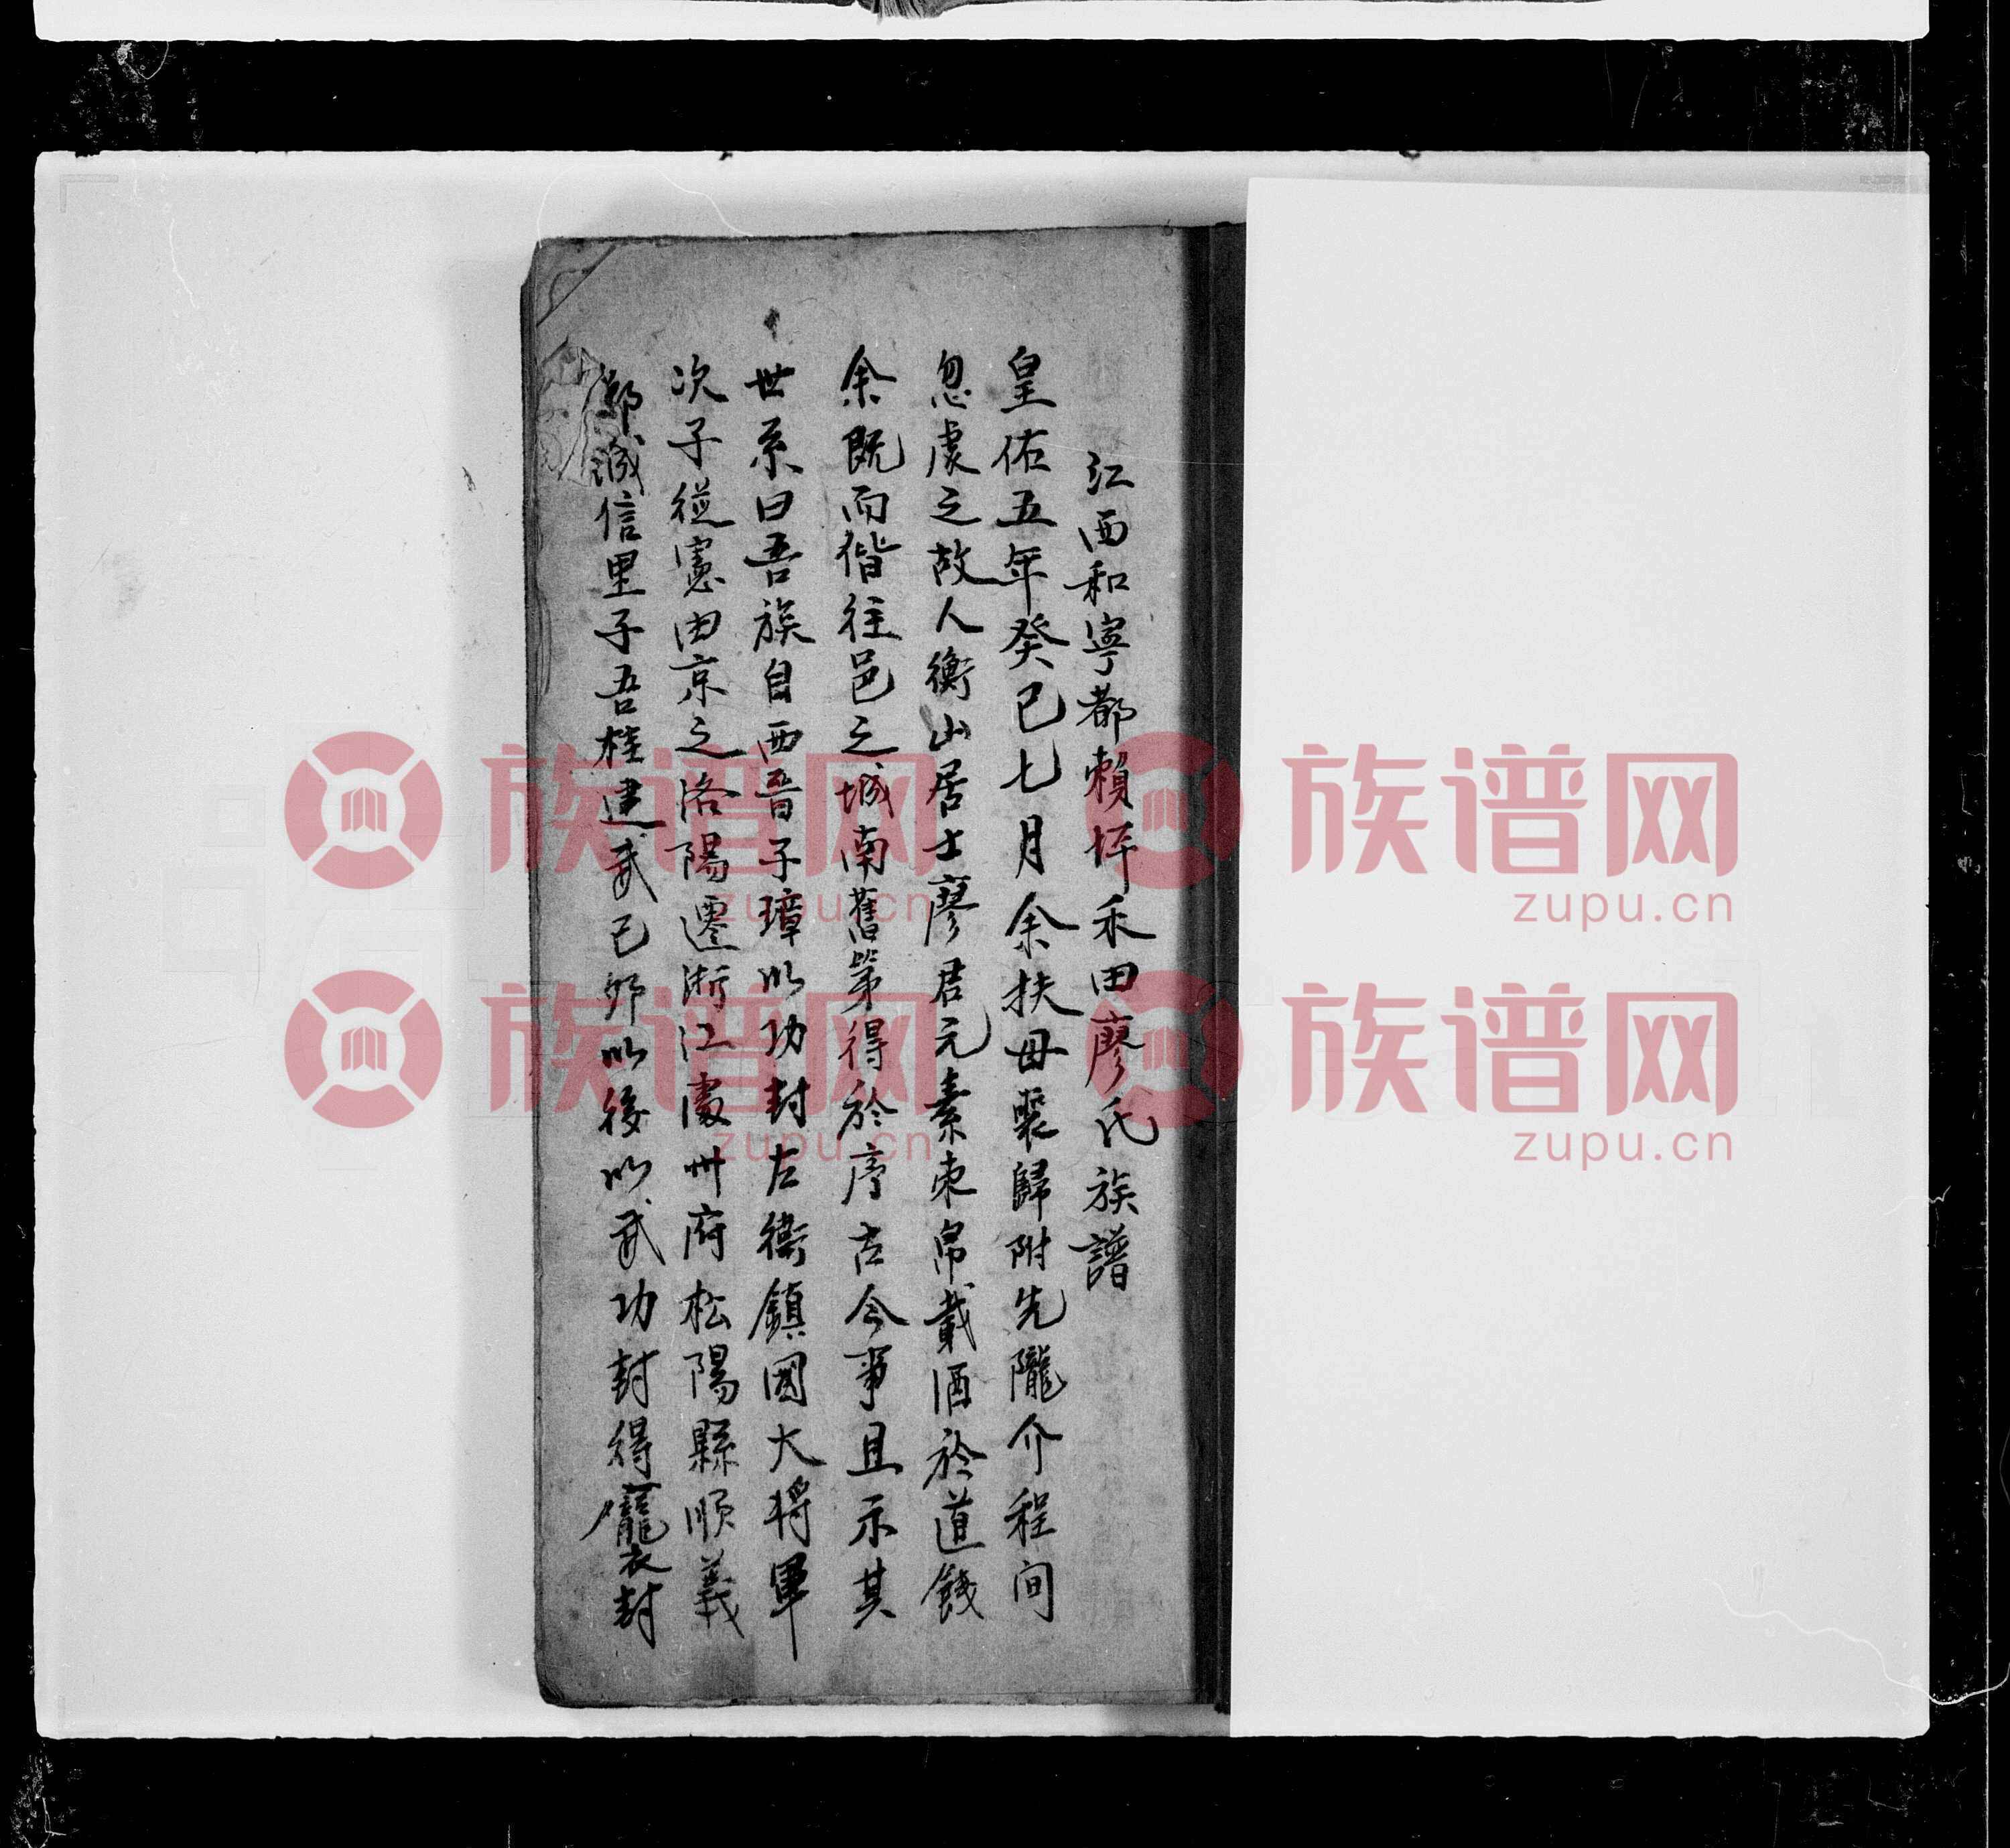 江西和寧都賴坪禾田廖氏族譜
皇佑五年癸巳七月余扶母喪歸附先隴介程间
忽虔之故人衡山居士廖君元素束帛載酒於道餞
余既而偕往邑之城南舊第得於序古今事且示其
世系曰吾族自西晉子璋以功封左衛鎮國大將軍
次子從憲由京之洛陽遷浙江處州府松陽縣順義
鄉誠信里子吾桂建武己卯以後以武功封得龍衣封
族谱网
zupu.cn
族谱网
zupu.cn
族谱网
zupu.cn
族谱网
zupu.cn